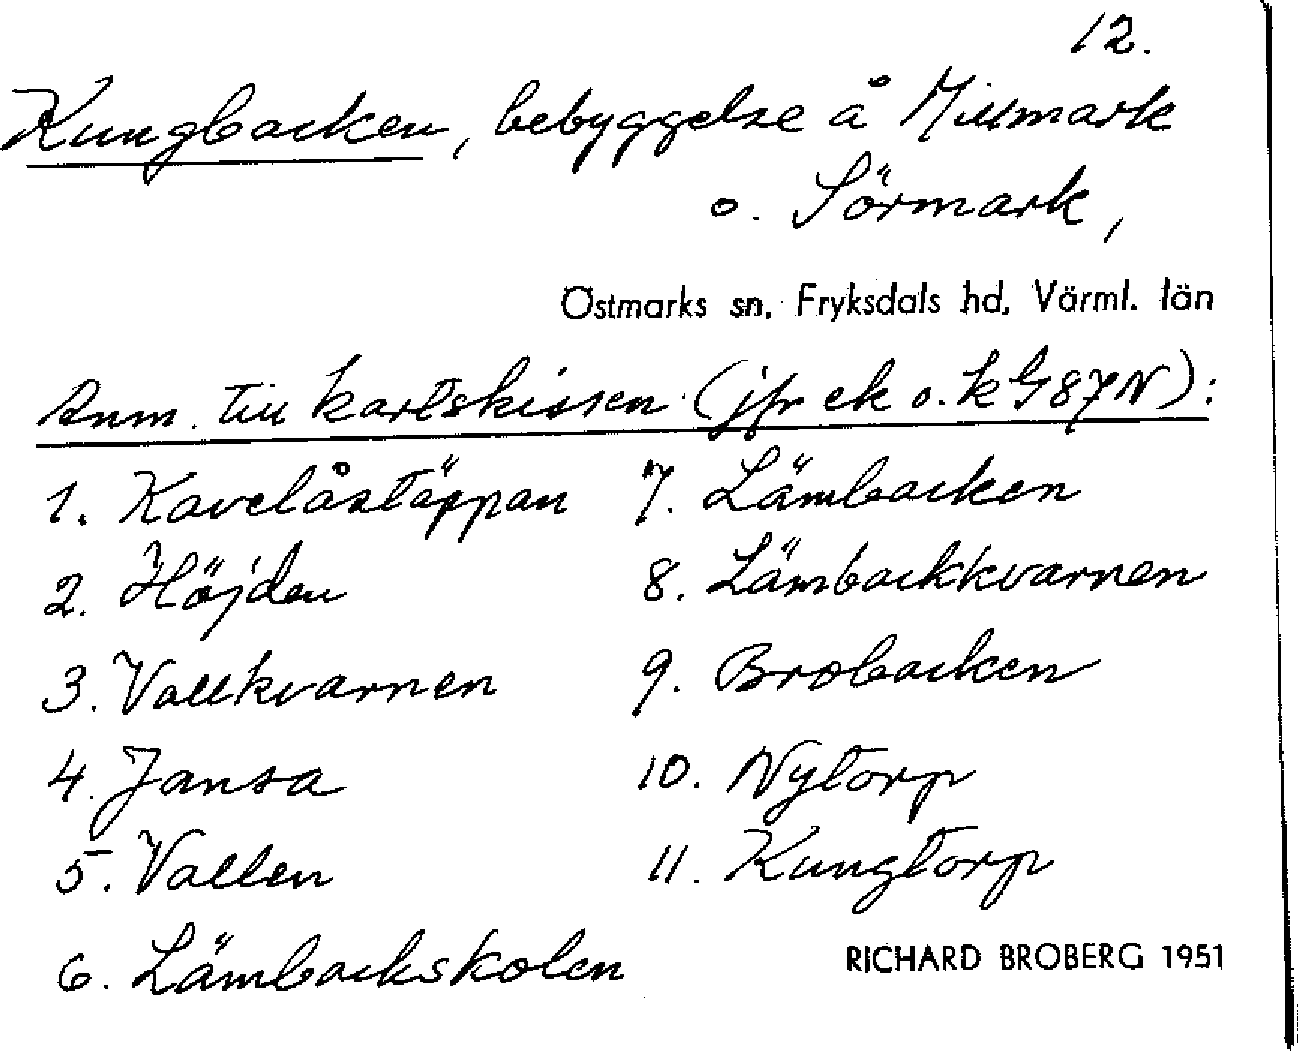 12.
Kungbacken, bebyggelse å Millmark
o. Sörmark,
Östmarks sn, Fryksdals hd, Värml. län
Anm. till kartskissen (jfr ek o. k G87N):
1. Kavelåstäppan
2. Höjden
3. Vallkvarnen
4. Jansa
5. Vallen
6. Lämbackskolen
7. Lämbacken
8. Lämbackkvarnen
9. Brobacken
10. Nytorp
11. Kungtorp
RICHARD BROBERG 1951